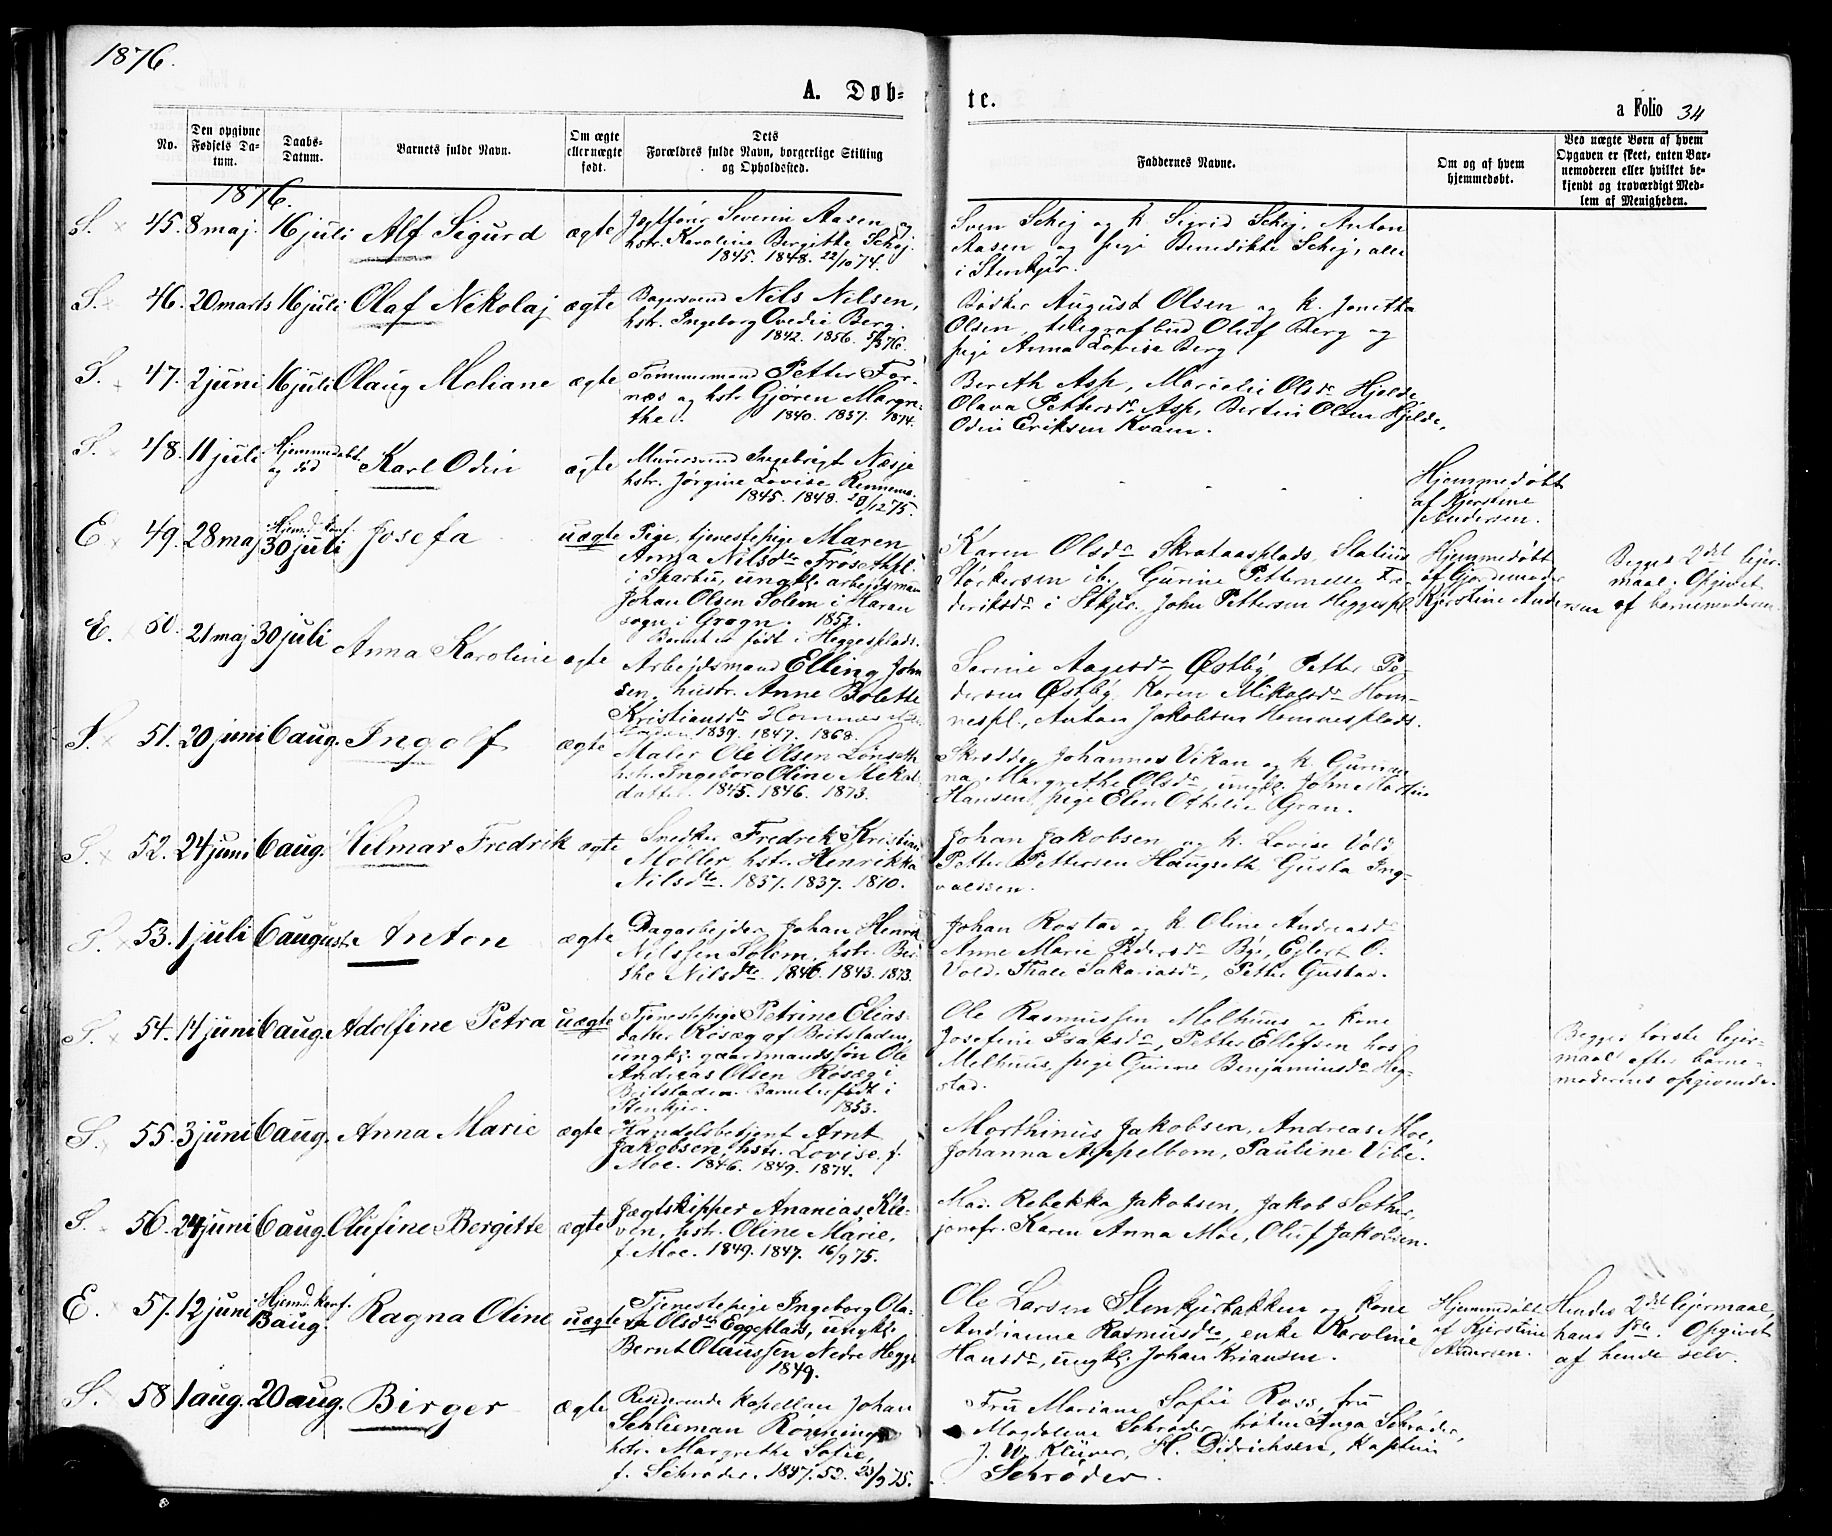 1876.
A. Døb-
te.
a Folio 34
No.
Den opgivne Fødsels Da-
tum.
Daabs-
Datum.
Barnets fulde Navn.
Om ægte
eller uægte
født.
Dets
Forældres fulde Navn, borgerlige Stilling
og Opholdssted.
Faddernes Navne.
Om og af hvem
hjemmedøbt.
Ved uægte Børn af hvem
Opgaven er skeet, enten Bar-
nemoderen eller hvilket be-
kjendt og troværdigt Med-
lem af Menigheden.
1876.
S. × 45. 8 maj. 16 juli Alf Sigurd ægte
Severin Aasen og
hstr. Karoline Bergitte Schej.
1845. 1848. 22/10 74.
Sven Schej og k. Sigrid Schej, Anton
Aasen og pige Benedikte Schej, alle
i Stenkjær.
S. × 46. 20 marts 16 juli Olaf Nikolaj ægte
Bagersvend Nils Nilsen,
hstr. Ingeborg Ovedie Berg.
1842. 1856. 5/3 76.
Bødker August Olsen og k. Jonetta
Olsen, telegrafbud Oluf Berg og
pige Anna Lovise Berg
S. × 47. 2 juni 16 juli Olaug Meliane ægte
Tømmermand Petter For-
næs og hstr. Gjøren Margre-
the. 1840. 1837. 1874.
Bereth Asp, Olsdr Hjelde
Olava Pettersdr Asp, Bertin Olsen Hjelde,
Odin Eriksen Kvam.
S. 48. 11 juli Hjemmedøbt
og død Karl Odin ægte
Murersvend Ingebrigt Næsje
hstr. Jørgine Lovise
1845. 1848. 28/12 75.
Hjemmedøbt
af Kjerstine
Andersen.
E × 49. 28 maj Hjemd. konf.
30 juli Josefa uægte
Pige, tjenestepige Maren
Anna Nilsdtr Frøsethpl.
i Sparbu, ungkl. arbejdsmand
Johan Olsen Solem i Haran
sogn i Grogn. 1852.
Barnet er født i Heggesplads.
Karen Olsdr Skrataasplads,
Størkersen ib., Gurine Petternelle Fre-
deriksdr i Stkjr. John Pettersen Heggespl.
Hjemmedøbt
af Gjordemoder
Kjerstine Andersen
Begges 2det lejer-
maal. Opgivet
af barnemoderen.
E. × 50. 21 maj 30 juli Anna Karoline ægte
Arbejdsmand Elling John
sen, hustr. Anne Bolette
Kristiansdr Homnes
1839. 1847. 1868.
Serine Aagesdr Østby, Petter Pe-
dersen Østby. Karen Mikalsdr Hom-
nespl., Anton Jakobsen Homnesplads.
S. × 51. 20 juni 6 aug. Ingolf ægte
Maler Ole Olsen Lønseth
hstr. Ingeborg Oline Mikal
datter. 1845. 1846. 1873.
Skrædder Johannes Vikan og k. Gurian-
na Margrethe Olsdr, ungkl. John Martin
Hansen, pige Elen Othelie Gran.
S. × 52. 24 juni 6 aug. Hilmar Fredrik ægte
Snedker Fredrik Kristian
Møller, hstr. Henrikke
Nilsdtr. 1837. 1837. 1870.
Johan Jakobsen og k. Lovise Vold
Petter Pettersen Haugseth, Gusta Ing-
valdsen.
S. × 53. 1 juli 6 auguste Anton ægte
Dagarbejder Johan Henrik
Nilssen Solem, hstr. Ber-
the Nilsdtr. 1846. 1843. 1873.
Johan Rostad og k. Oline Andreasdr
Anne Marie Pedersdr Bye, Ejlert O.
Vold, Thale Sakariasdr, Petter Gustad.
S. × 54. 14 juni 6 aug. Adolfine Petra uægte
Tjenestepige Petrine Elias-
datter Røsæg af Beitstaden,
ungkl. gaardmandssøn Ole
Andreas Olsen Røsæg i
Beitstaden. Barnet er født i
Stenkjær. 1853.
Ole Rasmussen Melhuus og kone
Josefine Isaksdr, Petter Ellefsen hos
Melhuus, pige Gurine Benjaminsdr Heg-
stad.
Begges første lejer-
maal efter barne-
moderens opgivende.
S. × 55. 3 juni 6 aug. Anna Marie ægte
Handelsbetjent Arnt
Jakobsen, hstr. Lovise, f.
Moe. 1846. 1849. 1874.
Morthinus Jakobsen, Andreas Moe,
Johanna Appelbom, Pauline Vibe.
S. × 56. 24 juni 6 aug. Olufine Bergitte ægte
Jægtskipper Ananias Klø-
ven, hstr. Oline Marie,
f. Moe. 1849. 1847. 16/9 75.
Mad. Rebekka Jakobsen, Jakob Sæther,
jomfr. Karen Anna Moe, Oluf Jakobsen.
E. × 57. 12 juni Hjemd. konf.
13 aug. Ragna Oline uægte
Tjenestepige Ingeborg Ola-
va Olsdtr Eggeplads, ungkl.
Bernt Olaussen Nedre Hegge
1849.
Ole Larsen Stenkjærbakken og kone
Andrianne Rasmusdtr, enke Karoline
Hansdr, ungkl. Johan Kriansen.
Hjemmedøbt
af Kjerstine
Andersen.
Hendes 2det lejermaal,
hans 1ste. Opgivet
af hende selv.
S. × 58 1 aug. 20 aug. Birger ægte
Residerende kapellan Johan
Schlieman Rønning,
hstr. Margrethe Sofie,
f. Schrøder. 1847. 52. 23/9 75.
Fru Mariane Sofie Ross, fru
Magdalena Schrøder, frøken Inga Schrøder,
J. W. Klüver, H. Didrichsen, kaptein
Schrøder.